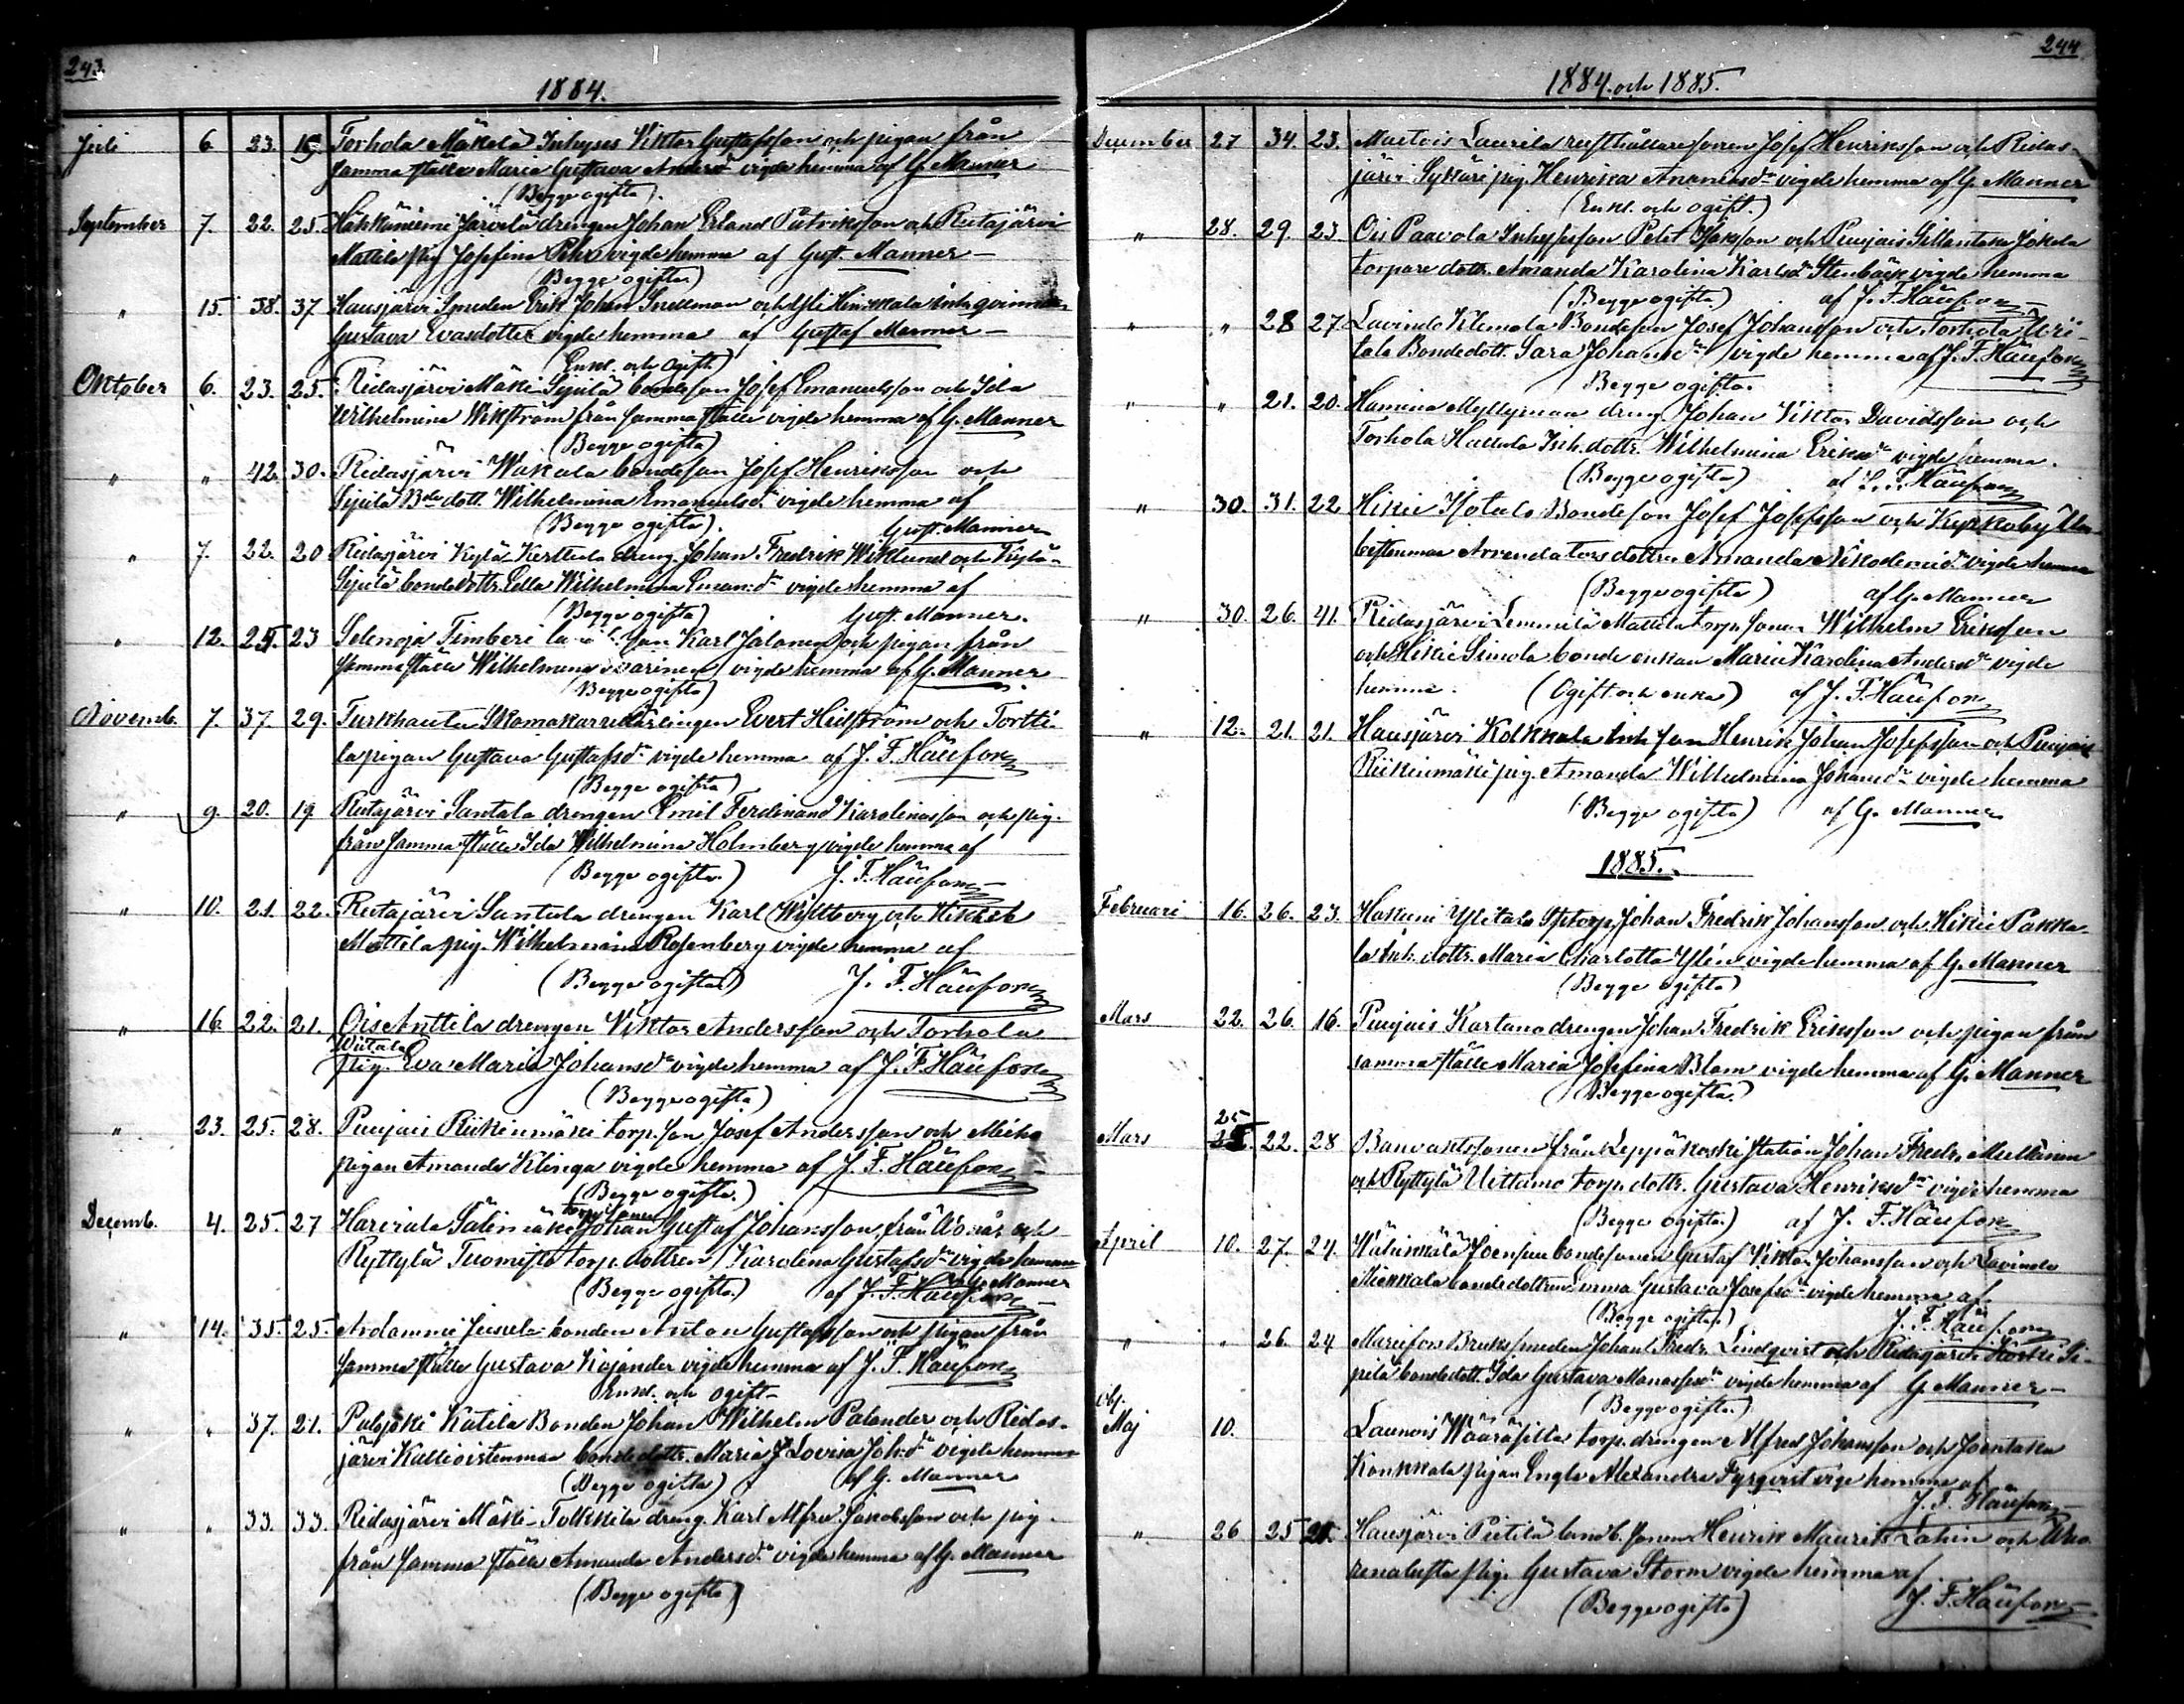 243.
1884.
Juli 6. 23. 19. Torhola Mäkelä Inhyses Viktor Gustafsson och pigan från
samma ställe Maria Gustava Andersdr vigde hemma af G. Manner
(Begge ogifta).
September 7. 22. 25. Järvelä drengen Johan Erland och Ridasjärvi
Mattila pig. Josefina vigde hemma af Gust. Manner
(Begge ogifta)
" 15. 38. 37 Hausjärvi Smeden Erik Johan Snellman och
Gustava Evasdotter vigde hemma af Gustaf Manner
Enkl. och Ogift)
Oktober 6. 23. 25. Ridasjärvi Mäki Sipilä bondeson Josef Emanuelsson och Ida
Wilhelmina Wikström från samma ställe vigde hemma af G. Manner
(Begge ogifta)
" " 42. 30. Ridasjärvi Wakala bondeson Josef Henriksson och
Sipilä Bde dott. Wilhelmina Emanuelsdr vigde hemma af
(Begge ogifta). Gust. Manner
" 7. 22. 20 Ridasjärvi Kylä Kerttula dreng. Johan Fredrik Wiklund och Kylä-
Sipilä bondedottr. Wilhelmina Eman:dr vigde hemma af
(Begge ogifta) Gust. Manner.
" 12. 25. 23 Selenoja Timberi son Karl Jalonen och pigan från
samma ställe Wilhelmina vigde hemma af G. Manner
(Begge ogifta)
Novemb. 7. 37. 29. Turkhauta Skomakare Evert Hellström och Torttila
pigan Gustava Gustafsdr vigde hemma af J. F. Häufon
(Begge ogifta)
" 9. 20. 19 Ridasjärvi Santala drengen Emil Ferdinand Karolinasson och pig.
från samma ställe Ida Wilhelmina Holmberg vigde hemma af
(Begge ogifta.) J. F. Häufon
" 10. 21. 22. Ridasjärvi Santala drengen Karl Willberg och Hikiä
Mattila pig. Wilhelmina Rosenberg vigde hemma af
(Begge ogifta) J. F. Häufon
" 16. 22. 21. Ois Anttila drengen Viktor Andersson och Torhola
Wiitala
pig. Eva Maria Johansdr vigde hemma af J. F. Häufon
(Begge ogifta)
" 23. 25. 28. Puujais Riikinmäki torp. son Josef Andersson och
pigan Amanda Klinga vigde hemma af J. F. Häufon
(Begge ogifta.)
Decemb. 4. 25. 27 Johan Gustaf Johansson från och
Ryttylä Tuomisto torp. dottren Karolina Gustafsdr vigde hemma
(Begge ogifta.) af J. F. Häufon G. Manner
" 14. 35. 25. bonden Anton Gustafsson och pigan från
samma ställe Gustava Kajander vigde hemma af J. F. Häufon
Enkl. och ogift
" " 37. 21. Katila Bonden Johan Wilhelm Palander och Ridas-
järvi bondedottr. Maria Lovisa Joh:dr vigde hemma
(Begge ogifta) af G. Manner
" " 33. 33. Ridasjärvi Mäki-Tolkkila dreng. Karl Alfred Jakobsson och pig.
från samma ställe Amanda Andersdr vigde hemma af G. Manner
(Begge ogifta)
244
1884. och 1885.
December 27 34. 23. Laurila rusthållaresonen Josef Henriksson och Ridas-
järvi Sykäri pig. Henrika vigde hemma af G. Manner
(Enkl. och ogift.)
" 28. 29. 23. Ois Paavola Inhysesson Petter Isaksson och Puujais Sillantaka Jokela
torpare dottr. Amanda Karolina Karlsdr Stenbäck vigde hemma
(Begge ogifta.) af J. F. Häufon
" " 28 27. Lavinto Klemola Bondeson Josef Johansson och Torhola
Bondedott. Sara Johansdr vigde hemma af J. F. Häufon
Begge ogifta.
" " 21. 20. Hamina Myllymaa dreng. Johan Viktor Davidsson och
Torhola Inh. dottr. Wilhelmina Eriksdr vigde hemma.
(Begge ogifta) af J. F. Häufon
" 30. 31. 22 Hikiä Isotalo Bondeson Josef Josefsson och Kyrkoby
Arrendators dottren Amanda Nikodemidr vigde hemma
(Begge ogifta) af G. Manner
" 30. 26. 41. Ridasjärvi Lemmilä Mattila torp. sonen Wilhelm Eriksson
och Hikiä Simola bonde enkan Maria Karolina Andersdr vigde
hemma. (Ogift och enka) af J. F. Häufon
" 12. 21. 21. Hausjärvi Kolkkala Inh. son Henrik Johan Josefsson och Puujais
Riikinmäki pig. Amanda Wilhelmina Johansdr vigde hemma
(Begge ogifta) af G. Manner
1885.
Februari 16. 26. 23. Ylitalo Johan Fredrik Johansson och Hikiä Pakka-
la Inh. dottr. Maria Charlotta Ylén vigde hemma af G. Manner
(Begge ogifta)
Mars 22. 26. 16. Puujais Kartano drengen Johan Fredrik Eriksson och pigan från
samma ställe Maria Josefina Blom vigde hemma af G. Manner
(Begge ogifta.)
Mars 25 22. 28 Banvaktssonen från Leppäkoski station Johan Fredr. Mulkinen
och Ryttylä Uittamo torp. dottr. Gustava Henriksdr vigde hemma
(Begge ogifta.) af J. F. Häufon
April 10. 27. 24. Joensuu bondesonen Gustaf Viktor Johansson och Lavinto
Miekkala bondedottren Emma Gustava Josefsdr vigde hemma af
(Begge ogifta.) J. F. Häufon
" " 26. 24 Mariefors Bruks smeden Johan Fredr. Lindqvist och Ridasjärvi Si-
pilä bondedott. Ida Gustava Manassesdr vigde hemma af G. Manner
(Begge ogifta.)
Maj 10. Launois torp. drengen Alfred Johansson och Joentaka
Konkkala pigan Engla Alexandra vige hemma af
J. F. Häufon
" 26 25 Hausjärvi Pietilä landb. sonen Henrik Maurits Latin och
pig. Gustava Storm vigde hemma af
(Begge ogifta) J. F. Häufon